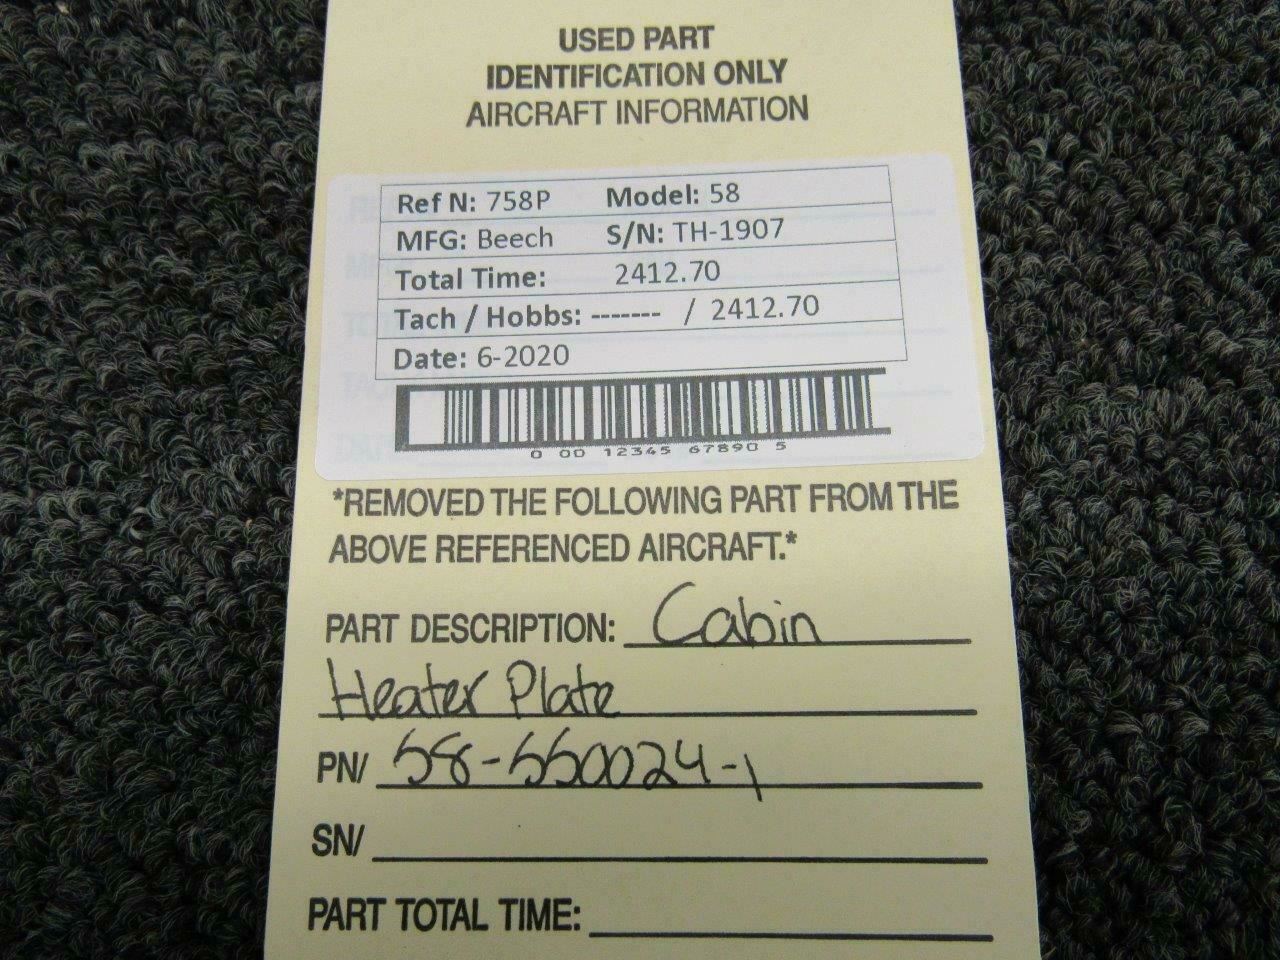 USED PART
IDENTIFICATION ONLY
AIRCRAFT INFORMATION
Ref N: 758P Model: 58
MFG: Beech S/N: TH-1907
Total Time: 2412.70
Tach / Hobbs: ------- / 2412.70
Date: 6-2020
0 00 12345 67890 5
*REMOVED THE FOLLOWING PART FROM THE
ABOVE REFERENCED AIRCRAFT.*
PART DESCRIPTION: Cabin
Heater Plate
PN/ 58-550024-1
SN/
PART TOTAL TIME: